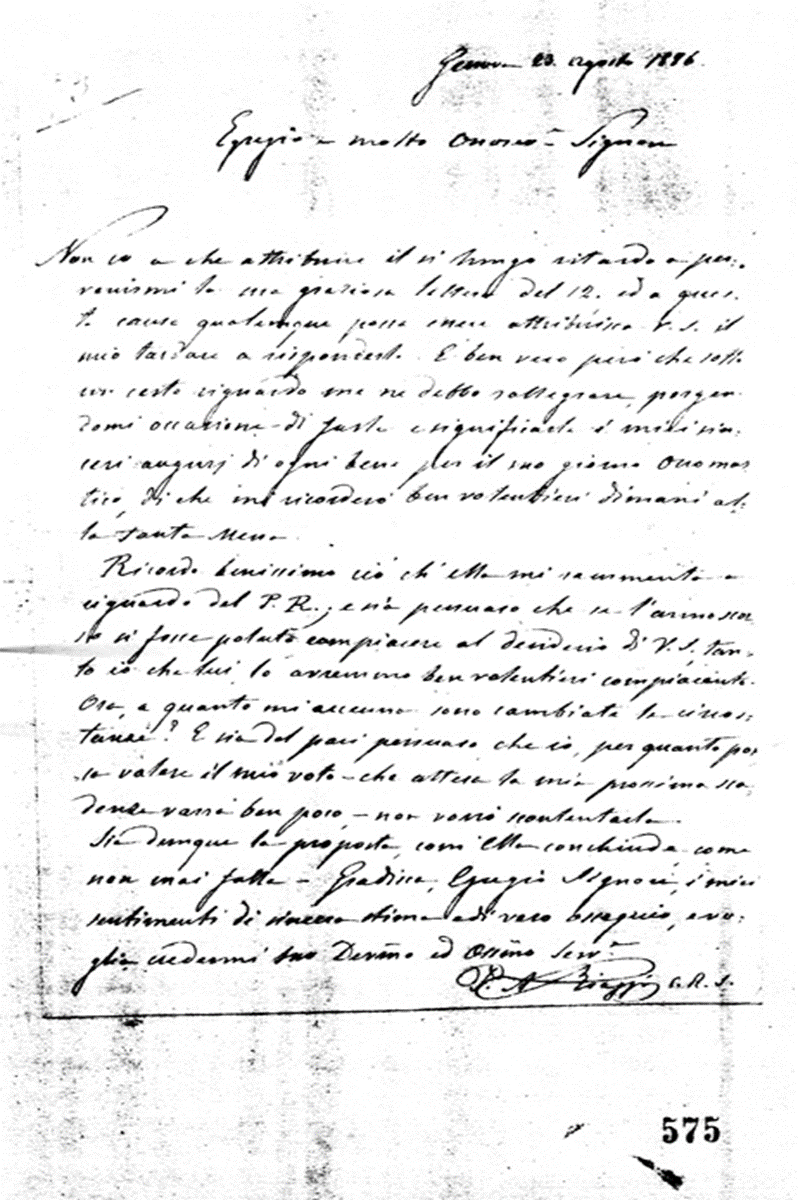 Genova 23. agosto 1886.
Egregio e molto Onorev. Signore
Non so a che attribuire il sì lungo ritardo a per-
venirmi la sua graziosa lettera del 12. ed a ques-
ta causa qualunque possa essere attribuisca V. S. il
mio tardare a risponderle. È ben vero però che sotto
un certo riguardo me ne debbo rallegrare, porgen-
domi occasione di farle e significarle i miei sin-
ceri augurj di ogni bene per il suo giorno onomas-
tico, di che mi ricorderò ben volentieri dimani al-
la santa Messa.
Ricordo benissimo ciò ch'ella mi rammenta a
riguardo del P. R.; e sia persuaso che se l'anno scor-
so si fosse potuto compiacere al desiderio di V. S. tan-
to io che lui, lo avremmo ben volentieri compiaciuto.
Ora, a quanto mi accenna sono cambiate le circos-
tanze? E sia del pari persuaso che io, per quanto pos-
sa valere il mio voto – che attesa la mia prossima sca-
denza varrà ben poco – non vorrò scontentarla.
Sia dunque la proposta, com' Ella conchiude, come
non mai fatta – Gradisca, Egregio Signore, i miei
sentimenti di sincera stima e di vero ossequio, e vo-
glia credermi suo Devmo ed Ossmo Serv.
P. N. Biaggi C. R. S.
575